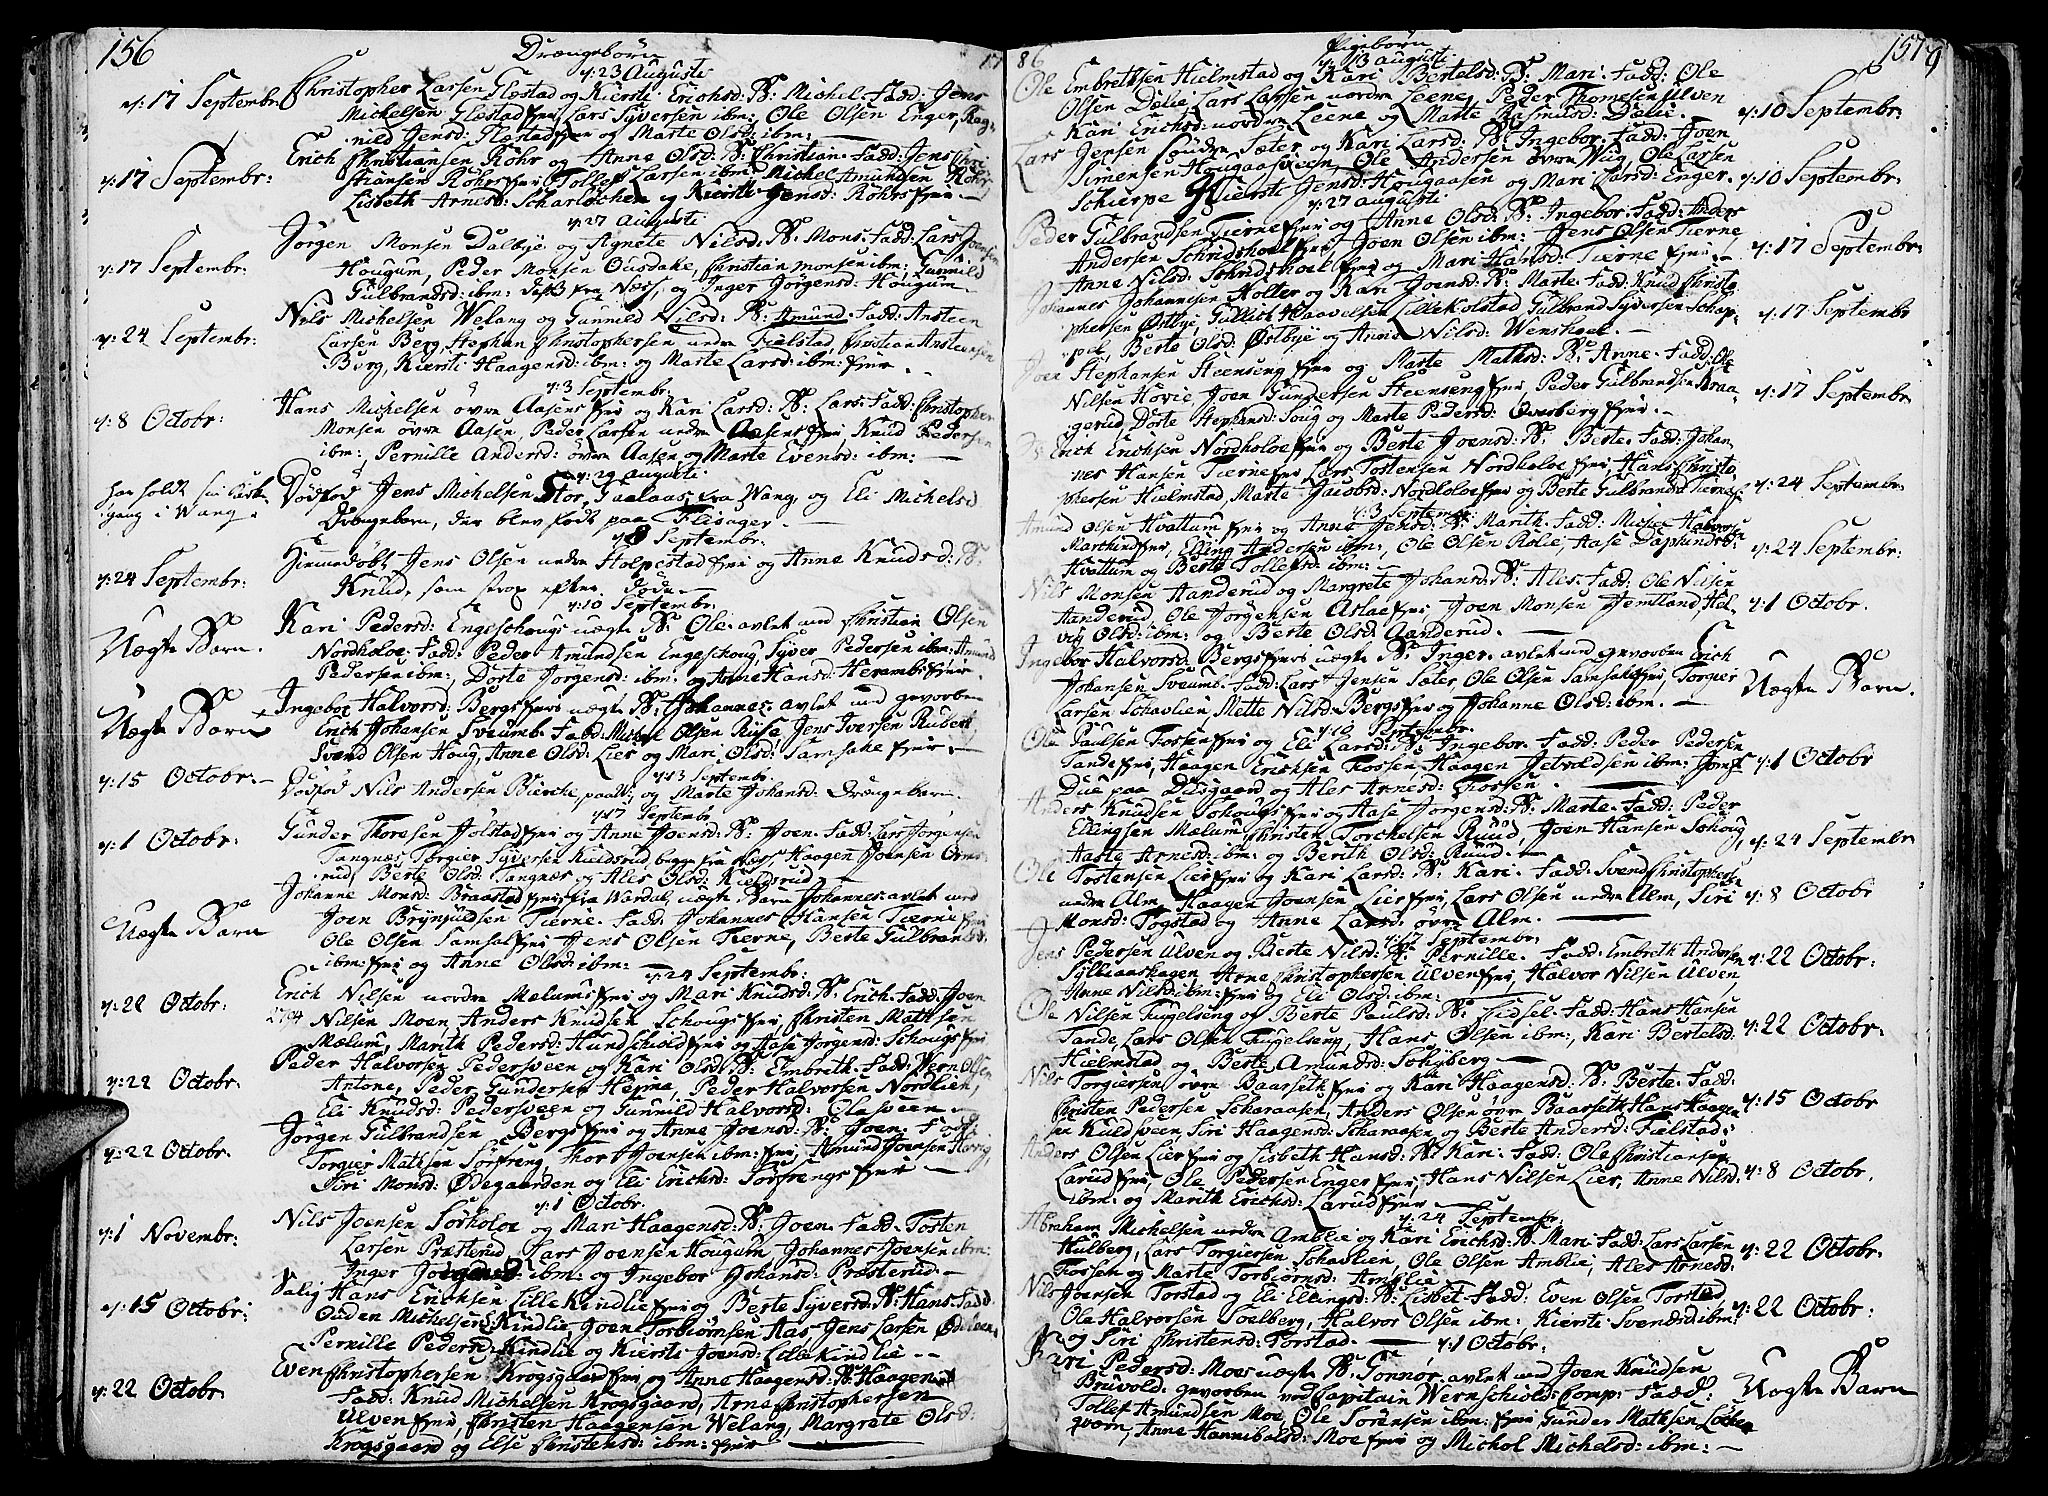 156
Drængebørn
17
d: 23 Augusti
d: 17 Septembr:
Christopher Larsen Glæstad og Kiersti Erichsd: B: Michel. Fadd: Jens
Michelsen Glæstad Ejer, Lars Syversen ibm: Ole Olsen Enger, Rag-
nild Jensd: Glæstad Ejer og Marte Olsd: ibm:
d: 17 Septembr:
Erich Christiansen Röhr og Anne Olsd: B: Christian. Fadd: Jens Chri
stiansen Röhrs Ejer Tollef Larsen ibm: Michel Amundsen Röhr
Lisbeth Arnesd: Scharlochen og Kiersti Jensd: Röhrs Ejer
d: 27 Augusti
d: 17 Septembr:
Jörgen Monsen Dalbye og Agnete Nilsd: B: Mons. Fadd: Lars Joensen
Hougum, Peder Monsen Ousdahe, Christian Monsen ibm: Gunnild
Gulbrandsd: ibm: fra Næss, og Inger Jörgensd: Hougum
d: 24 Septembr:
Nils Michelsen Welang og Gunnild Nilsd: B: Amund. Fadd: Ansteen
Larsen Berg, Stephan Christophersen nedre Fielstad, Christian Ansteensen
Berg, Kiersti Haagensd: ibm: og Marte Larsd: ibm: Ejer
d: 3 Septembr:
d: 8 Octobr:
Hans Michelsen övre Aasens Ejer og Kari Larsd: B: Lars. Fadd: Christopher
Monsen övre Aasen, Peder Larsen nedre Aasens Ejer, Knud Pedersen
ibm: Pernille Andersd: övre Aasen og Marte Evensd: ibm:
d: 29 Augusti
har holdt sin Kirk-
gang i Wang
Dödfød Jens Michelsen Stor, Gaalaas fra Wang, og Eli Michelsd
Drengebarn, der blev født paa Flisager
d: 8 Septembr:
d: 24 Septembr:
Hjemmedöbt Jens Olsen nedre Holpestad Ejer og Anne Knudsd: B:
Knud, som strax efter döde
d: 10 Septembr:
Uægte Barn.
Kari Pedersd: Engeschougs uægte B: Ole. avlet med Christian Olsen
Nordholoe. Fadd: Peder Amundsen Engeschoug, Syver Pedersen ibm: Amund
Pedersen ibm:, Dorte Jorgensd: ibm: og Anne Hansd: Herambs Ejer
Uægte Barn
Ingebor Halvorsd: Bergs Ejers uægte B: Johannes avlet med gevorben
Erich Johansen Sveumb. Fadd: Michel Olsen Ryse, Jens Iversen Rubert
Svend Olsen Houg, Anne Olsd: Lier og Mari Olsd: Samsahe Ejer
d: 13 Septembr.
d: 15 Octobr:
Dödfød Nils Andersen Bierche paa og Marte Johansd: Drængebarn.
d: 17 Septembr
d: 1 Octobr:
Gunder Thoresen Jolstad Ejer og Anne Joensd: B: Joen. Fadd: Lars Jorgensen
Tangnæs, Torgier Syversen Kieldsrud begge fra Næss, Haagen Joensen Orms
rud, Berte Olsd: Tangnæs og Ales Olsd: Kieldsrud
Uægte Barn
Johanne Monsd: Braastad Ejers fra Wardal, uægte Barn Johannes avlet med
Joen Brynjulsen Tierne. Fadd: Johannes Hansen Tierne Ejer
Ole Olsen Samsahl Ejer Jens Olsen Tierne, Berte Gulbrandsd:
ibm: Ejer og Anne Olsd: ibm:
d: 24 Septembr:
d: 22 Octobr:
Erich Nilsen nordre Mælums Ejer og Mari Knudsd: B: Erich. Fadd: Joen
Nilsen Moen Anders Knudsen Schougs Ejer, Christen Mathsen
Mælum, Marith Pedersd: Hundschiold Ejer og Aase Jorgensd: Schougs Ejer
d: 22 Octobr:
Peder Halvorsen Pedersveen og Kari Olsd: B: Embreth. Fadd: Olsen
Antone, Peder Gundersen Hejme, Peder Halvorsen Nordlien,
Eli Knudsd: Pedersveen og Gunnild Halvorsd: Olasveen
d: 22 Octobr.
Jörgen Gulbrandsen Bergs Ejer og Anne Joensd: B: Joen. Fadd:
Torgier Mathsen Sörfreng, Thor Joensen ibm: Ejer, Amund Joensen
Siri Monsd: Ødegaarden og Eli Erichsd: Sörfrengs Ejer
d: 1 Octobr.
d: 1 Novembr:
Nils Joensen Sörholoe og Mari Haagensd: B: Joen. Fadd: Tosten
Larsen Præsterud, Lars Joensen Hougum, Johannes Joensen ibm:
Inger ibm: og Ingebor Johansd: Præsterud
d: 15 Octobr:
Salig Hans Erichsen Lille Kindlie Ejer og Berte Syversd: B: Hans. Fadd:
Ouden Michelsen Kindlie Joen Torbiörnsen Aas Jens Larsen
Pernille Pedersd: Kindlie og Kiersti Joensd: Lille Kindlie
d: 22 Octobr.
Even Christophersen Krogsgaard Ejer og Anne Haagensd: B: Haagen
Fadd: Knud Michelsen Krogsgaard, Arne Christophersen
Ulven Ejer, Christen Haagensen Welang, Margrete Olsd:
Krogsgaard og Else Christensd: ibm: Ejer
157
86
Pigebørn
d: 13 Augusti
Ole Embrethsen Hielmstad og Kari Bertelsd: B: Mari. Fadd: Ole
Olsen Dælie, Lars Larsen nordre Leene, Peder Thomesen Ulven
Kari Erichsd: nordre Leene og Marte Rasmusd: Dælie.
d: 10 Septembr:
Lars Jensen söndre Sæter og Kari Larsd: B: Ingebor. Fadd: Joen
Simensen Hougaaseen, Ole Andersen övre Wiig, Ole Larsen
Schierpe Kiersti Jensd: Hougaasen og Mari Larsd: Enger.
d: 10 Septembr:
d: 27 Augusti
Peder Gulbrandsen Tierne Ejer og Anne Olsd: B: Ingebor. Fadd: Anders
Andersen Schridshoel Ejer, Joen Olsen ibm: Jens Olsen Tierne
Anne Nilsd: Schridshoel Ejer og Mari Hansd: Tierne Ejer
d: 17 Septembr:
Johannes Johannesen Holter og Kari Joensd: B: Marte. Fadd: Knud Christo
phersen Østbye, Gullich Haavelsen Lille Kolstad Gulbrand Syversen Schap-
pel, Berte Olsd: Østbye og Anne Nilsd: Wenshoel.
d: 17 Septembr
Joen Stephansen Steenseng Ejer og Marte Mathsd: B: Anne. Fadd: Ole
Nilsen Hovie Joen Gundersen Steenseng Ejer, Peder Gulbrandsen Braa
gerud, Dorte Stephansd: Soug og Marte Pedersd: Overberg Ejer.
d: 17 Septembr:
Erich Erichsen Nordholoe Ejer og Berte Joensd: B: Berte. Fadd: Johan
nes Hansen Tierne Ejer Lars Tostensen Nordholoe Ejer, Hans Christo
phersen Hielmstad, Marte Jacobsd: Nordholoe Ejer og Berte Gulbrandsd: Tierne Ejer
d: 24 Septembr:
d: 3 Septembr:
Amund Olsen Hvattum Ejer og Anne Jensd: B: Marith. Fadd: Michel Halvorsen
Marthund Ejer, Elling Andersen ibm:, Ole Olsen Rolie, Aase
Hvattum og Berte Tollefsd: ibm:
d: 24 Septembr:
Nils Monsen Aanderud og Margrete Johansd: B: Ales. Fadd: Ole Nilsen
Aanderud Ole Jorgensen Aslae Ejer Joen Monsen Jemtland, Hel-
vig Olsd: ibm: og Berte Olsd: Aanderud.
d: 1 Octobr.
Ingebor Halvorsd: Bergs Ejers uægte B: Inger. avlet med gevorben Erich
Johansen Sveumb. Fadd: Lars Jensen Sæter, Ole Olsen Samsahe Ejer, Torgier
Larsen Schavlien, Mette Nilsd: Bergs Ejer og Johanne Olsd: ibm.
Uægte Barn.
d: 10 Septembr.
Ole Paulsen Fossen Ejer og Eli Larsd: B: Ingebor. Fadd: Peder Pedersen
Tande Ejer, Haagen Erichsen Fossen Haagen Jetvoldsen ibm:
Due paa Diisgaard og Ales Arnesd: Fossen.
d: 1 Octobr
Anders Knudsen Schougs Ejer og Aase Jorgensd: B: Marte. Fadd: Peder
Ellingsen Mælum Christen Torchelsen Ruud, Joen Hansen Schoug,
Aaste Arnesd: ibm: og Berith Olsd: Ruud.
d: 24 Septembr
Ole Tostensen Lier Ejer og Kari Larsd: B: Kari. Fadd: Svend Christophersen
nedre Alm Haagen Joensen Lier Ejer, Lars Olsen nedre Alm, Siri
Monsd: Togstad og Anne Larsd: övre Alm.
d: 8 Octobr
d: 17 Septembr:
Jens Pedersen Ulven og Berte Nilsd: B: Pernille. Fadd: Embreth Andersen
Sylliaashagen Arne Christophersen Ulven Ejer, Halvor Nilsen Ulven,
Anne Nilsd: ibm: Ejer og Eli Olsd: ibm:
d: 22 Octobr:
Ole Nilsen Fuglseng og Berte Paulsd: B: Sidsel. Fadd: Hans Hansen
Tande, Lars Olsen Fuglseng, Hans Olsen ibm:, Kari Bertelsd:
Hielmstad og Berte Amundsd: Schyberg
d: 22 Octobr:
Nils Torgiersen övre Baarseth Ejer og Kari Haagensd: B: Berte. Fadd:
Christen Pedersen Scharaasen, Anders Olsen övre Baarseth, Hans Haagen
sen Kuldsveen, Siri Haagensd: Scharaasen og Berte Andersd: Fielstad:
d: 15 Octobr
Anders Olsen Lier Ejer og Lisbeth Hansd: B: Kari. Fadd: Ole Christiansen
Larud Ejer, Ole Pedersen Enger Ejer, Hans Nilsen Lier, Anne Nilsd:
ibm: og Marith Erichsd: Larud Ejer
d: 8 Octobr.
d: 24 Septembr:
Abraham Michelsen nedre Amblie og Kari Erichsd: B: Mari. Fadd: Lars Larsen
Hulberg, Lars Torgiersen Schavlien, Ole Olsen Amblie, Ales Arnesd:
Fossen og Marte Torbiornsd: Amblie
d: 22 Octobr.
Nils Joensen Torstad og Eli Ellingsd: B: Lisbet. Fadd: Even Olsen Torstad
Ole Halvorsen Soelberg, Halvor Olsen ibm: Kiersti Svendsd: ibm:
og Siri Christensd: Torstad.
d: 22 Octobr:
d: 1 Octobr:
Kari Pedersd: Moes uægte B: Gonnor, avlet med Joen Knudsen
Bruvold. gevorben ved Capitain Wernschiolds Comp: Fadd:
Tollef Amundsen Moe, Ole Sörensen ibm: Ejer Gunder Mathsen Löcher
qværn, Anne Hannibalsd: Moe Ejer og Michol Michelsd: ibm:
Uægte Barn